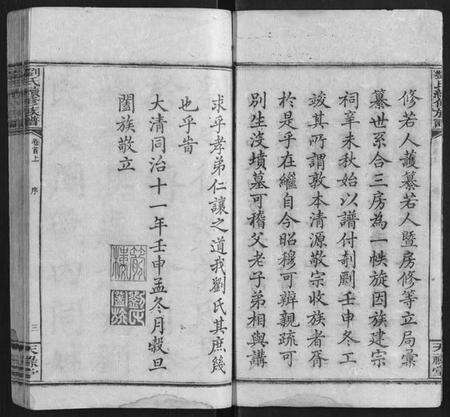 修若人護纂若人暨房修等立局彙
纂世系合三房為一帙旋因族建宗
祠辛未秋始以譜付剞劂壬申冬工
竣其所謂敦本清源敬宗收族者胥
於是乎在繼自今昭穆可辨親疏可
別生沒墳墓可稽父老子弟相與講
求乎孝弟仁讓之道我劉氏其庶幾
也乎旹
大清同治十一年壬申孟冬月穀旦
闔族敬立
劉氏續修族譜
卷首上
序
三
天祿堂